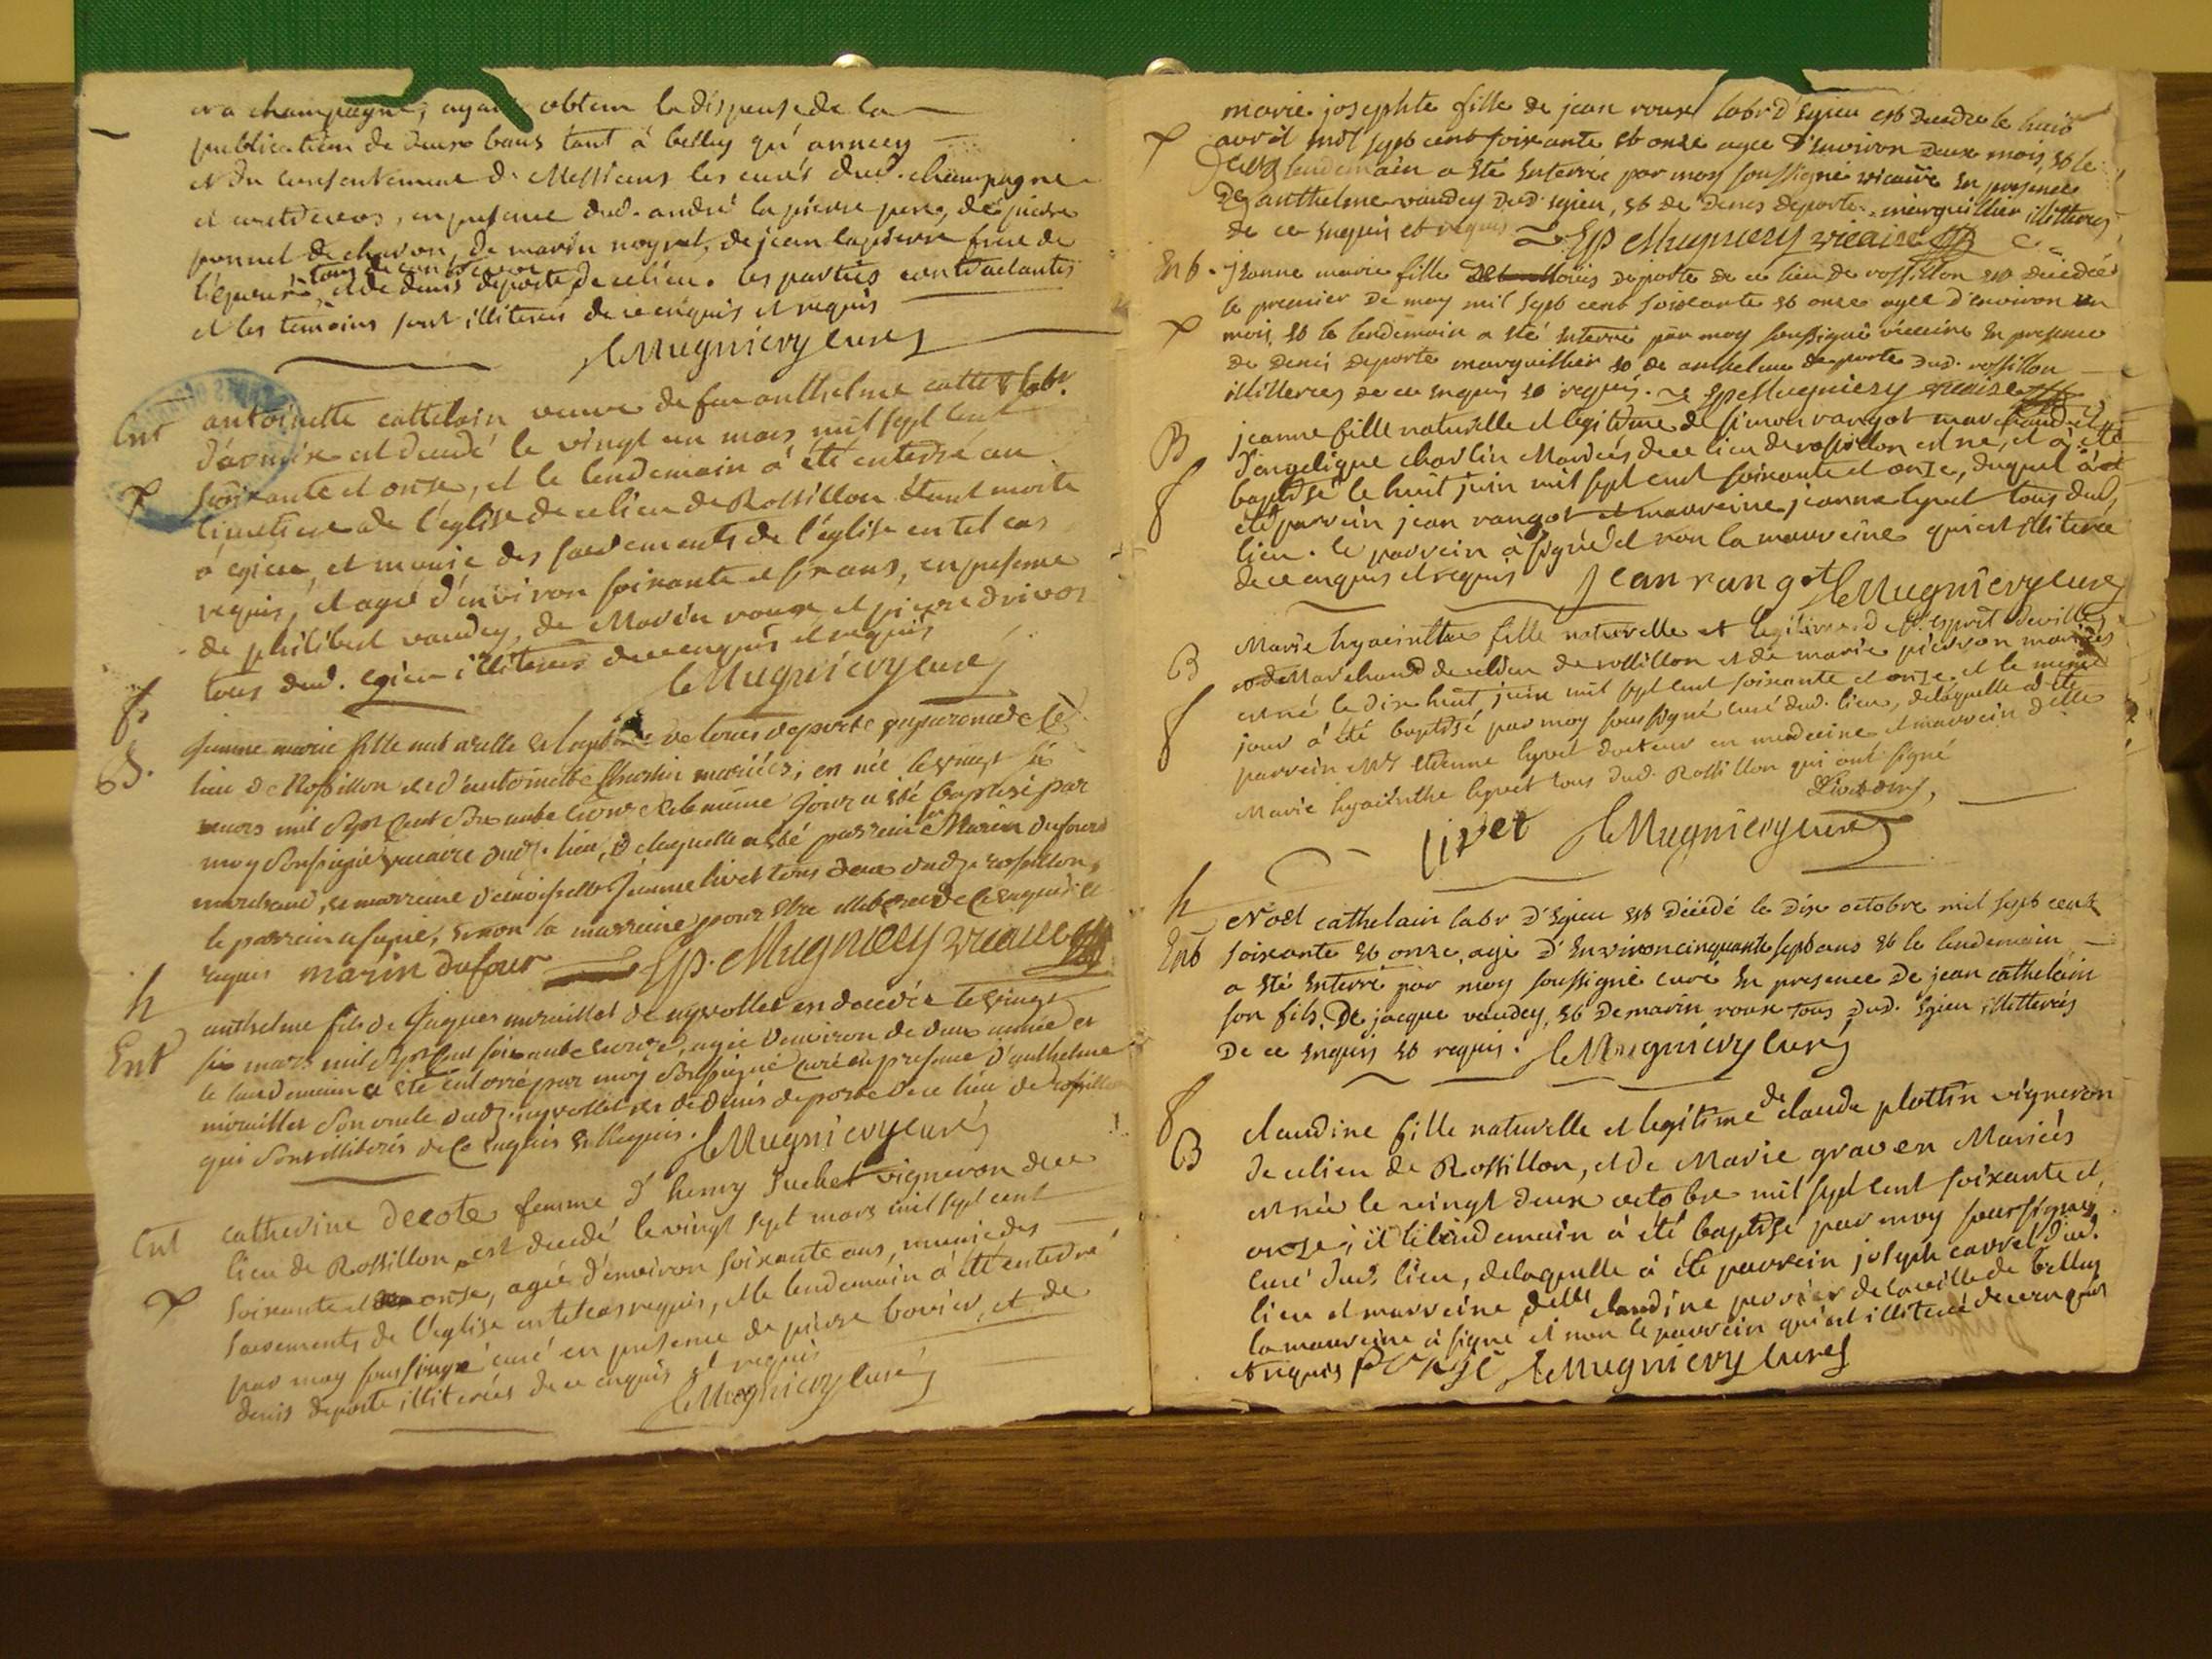 et a champagne, ayant obtenu la dispense de la
publication de deux bans tant à belley qu'annecy
et du consentement de Messieurs les curés dud. champagne
et, en presence dud. andré lapierre pere, de pierre
ponnet de chavon, de marin noyret, de jean lapierre frere de
l'epoux, et de denis deporte de ce lieu. les parties contractantes
et les temoins sont illiterés de ce enquis et requis
leMugniery curé
Ent antoinette cattelain veuve de feu anthelme cattet labr.
d'armix est decedé le vingt un mars mil sept cent
soixante et onse, et le lendemain à été enterré au
cimetiere de l'eglise de ce lieu de Rossillon étant morte
à egieu, et munie des sacrements de l'église en tel cas
requis, et agée d'environ soixante et six ans, en presence
de philibert vaudey, de Marin roux et pierre drivon
tous dud. egieu illiterés de ce enquis et requis
leMugniery curé
f
B. Jeanne marie fille naturelle et legitime de louis deporte de ce
lieu de Rossillon et d'antoinette Charlin mariées, en née le vingt six
mars mil sept cent soixante et onze et le même jour a été baptisé par
moy soussigné vicaire dud. lieu, de laquelle a été parrain Sr Marin dufour
marchand, et marraine demoiselle Jeanne livet tous deux dudt rossillon,
le parrain a signé, et non la marraine pour etre illiterée de ce enquis et
requis marin dufour JP. Mugniery vicaire
h
Ent anthelme fils de Jaques miraillet de nyvollet en decedée le vingt
six mars mil sept cent soixante et onze, agée d'environ de deux année et
le landemain a été enterré par moy soussigné curé en presence d'anthelme
miraillet son oncle dudt. nyvollet et de denis deporte de ce lieu de rossillon
qui sont illiterés de ce enquis et requis. leMugniery curé
Ent catherine decote femme d'henry Suchet vigneron de ce
lieu de Rossillon est decedé le vingt sept mars mil sept cent
soixante et onse, agée d'environ soixante ans, munie des
sacrements de l'eglise en tel cas requis, et le lendemain à été enterré
par moy soussigné curé en presence de pierre bovier, et de
denis deporte illiterés de ce enquis et requis
leMugniery curé
marie josephte fille de jean roux labr d'egieu est decedée le huit
avril mil sept cent soixante et onze agée d'environ deux mois, et le
lendemain a eté enterrée par moy soussigné vicaire en presence
de anthelme vaudey dud. egieu, et de denis deporte marguillier illitterés
de ce enquis et requis JP Mugniery vicaire
Ent. Jeanne marie fille Louis deporte de ce lieu de rossillon est decedée
le premier de may mil sept cent soixante et onze agée d'environ un
mois, et le lendemain a eté enterré par moy soussigné vicaire en presence
de denis deporte marguillier et de anthelme deporte dud. rossillon
illitterés de ce enquis et requis. JP Mugniery vicaire
B jeanne fille naturelle et legitime de simon rangot marchand et
d'angelique charlin Mariés de ce lieu de rossillon est né, et à été
baptisé le huit juin mil sept cent soixante et onze, duquel à
f été parrein jean rangot et marreine jeanne lyvet tous dud.
lieu. le parrein à signé et non la marreine qui est illiterée
de ce enquis et requis Jean rangot leMugniery curé
B Marie hyacinthe fille naturelle et legitime d Sr. esprit deville
Marchand de ce lieu de rossillon et de marie pierron mariés
est né le dix huit juin mil sept cent soixante et onze, et le même
f jour à été baptisé par moy soussigné curé dud. lieu, de laquelle a été
parrein Mr etienne lyvet docteur en medecine et marrein delle
Marie hyacinthe lyvet tous dud. Rossillon qui ont signé
Livet
livet leMugniery curé
h Noel cathelain labr d'egieu est décédé le dix octobre mil sept cent
Ent soixante et onze, agé d'environ cinquante sept ans et le lendemain
a eté enterré par moy soussigné curé en presence de jean cathelain
son fils, De jacque vaudey, et de marin roux tous dud. egieu illitterés
De ce enquis et requis. leMugniery curé
f
B claudine fille naturelle et legitime de claude plottin vigneron
de ce lieu de Rossillon, et de Marie graven Mariés
est née le vingt deux octobre mil sept cent soixante et
onze, et le lendemain à été baptisé par moy soussigné
curé dud. lieu, de laquelle à été parrein joseph carrel dud.
lieu et marreine delle claudine perrier de la ville de belley
la marreine à signé et non le parrein qui est illiteré de ce enquis
et requis leMugniery curé